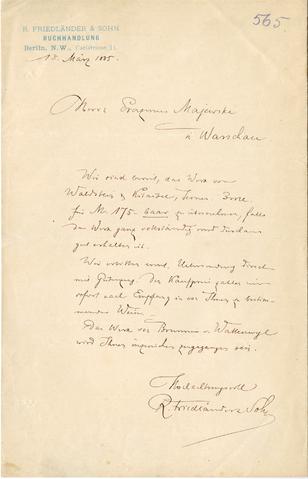 565.
R. FRIEDLÄNDER & SOHN
BUCHHANDLUNG
Berlin, N.W., Carlstrasse 11.
13. März 1885
Herrn Erazmus Majewski
in Warschau
Wir sind bereit, das Werk von
Waldstein & Kitaibel, Icones, 3
für M. 175 baar zu übernehmen, falls
das Werk ganz vollständig und durchaus
gut erhalten ist.
Wir erbitten Uebersendung direct
mit der Kaufpreis
sofort nach Empfang in von Ihnen zu bestim-
mender Weise.
Das Werk von Brunner v. Wattenwyl
wird Ihnen inzwischen zugegangen sein.
Hochachtungsvoll
R. Friedländer & Sohn